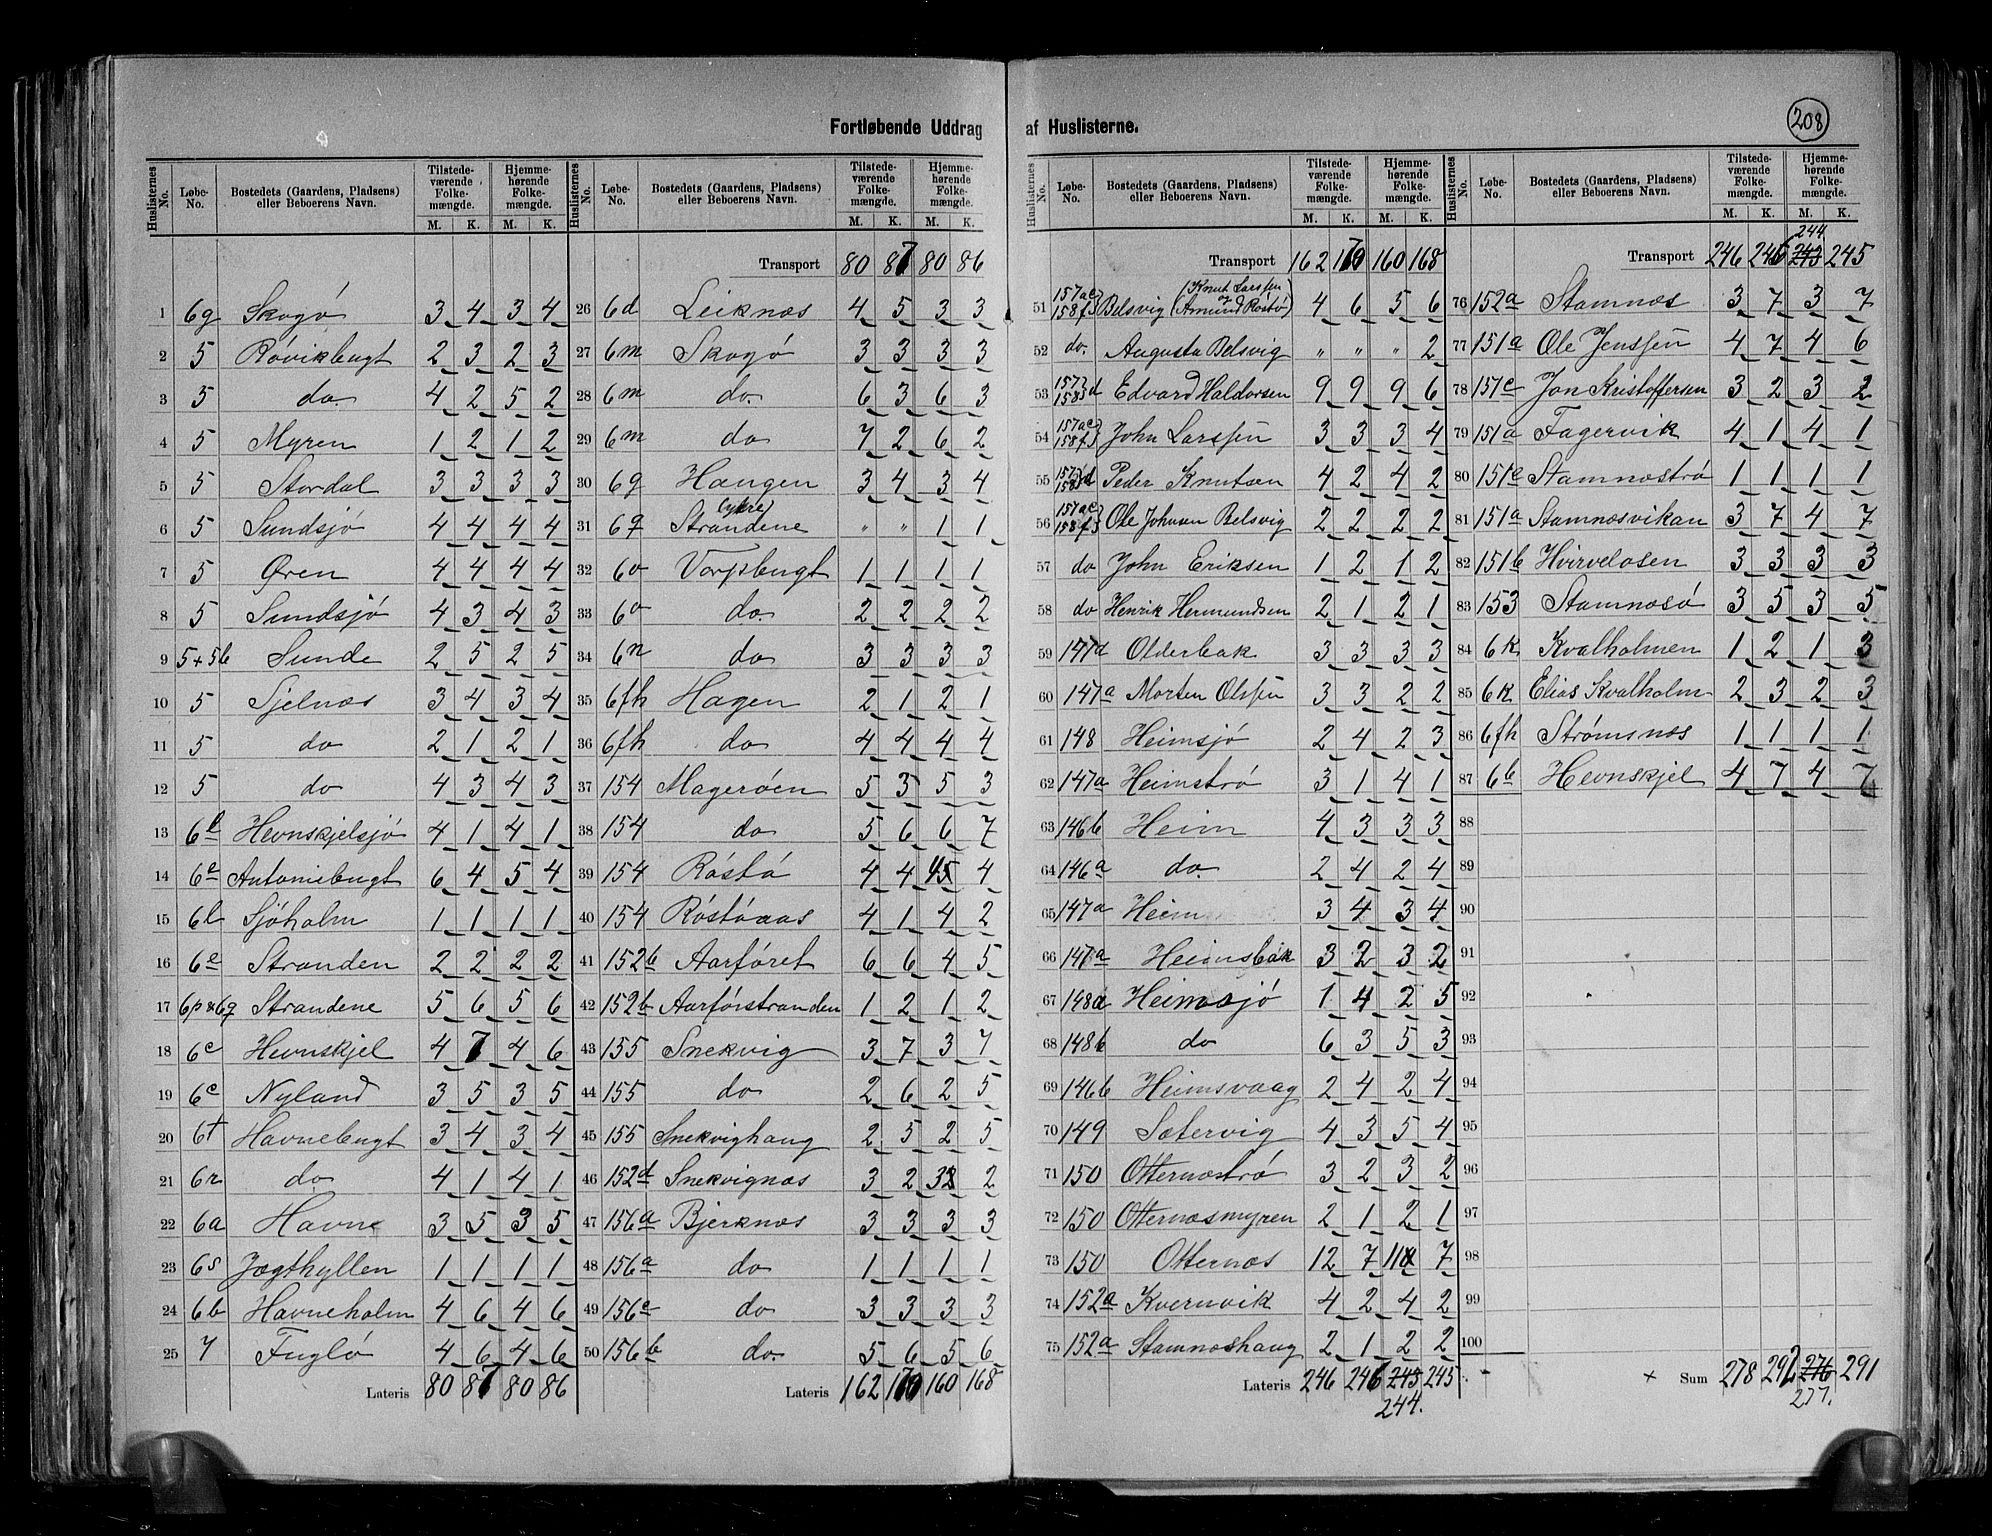 Fortløbende Uddrag af Huslisterne.
208
Huslisternes No. | Løbe-No. | Bostedets (Gaardens, Pladsen) eller Beboerens Navn. | Tilstedeværende Folkemængde. M. K. | Hjemmehørende Folkemængde. M. K.
1 6g Skogö 3 4 3 4
2 5 Rövikbugt 2 3 2 3
3 5 do. 4 2 5 2
4 5 Myren 1 2 1 2
5 5 Stordal 3 3 3 3
6 5 Sundsjö 4 4 4 4
7 5 Øren 4 4 4 4
8 5 Sundsjö 4 3 4 3
9 5+5b Sunde 2 5 2 5
10 5 Sjelnæs 3 4 3 4
11 5 do 2 1 2 1
12 5 do 4 3 4 3
13 6l Hevnskjelsjö 4 1 4 1
14 6e Antonibugt 6 4 5 4
15 6l Sjöholm 1 1 1 1
16 6e Stranden 2 2 2 2
17 6p & 6q Strandene 5 6 5 6
18 6c Hevnskjel 4 7 4 6
19 6c Nyland 3 5 3 5
20 6t Havnebugt 3 4 3 4
21 6r do. 4 1 4 1
22 6a Havne 3 5 3 5
23 6s Jægthyllen 1 1 1 1
24 6b Havneholm 4 6 4 6
25 7 Fuglö 4 6 4 6
Lateris 80 87 80 86
Huslisternes No. | Løbe-No. | Bostedets (Gaardens, Pladsen) eller Beboerens Navn. | Tilstedeværende Folkemængde. M. K. | Hjemmehørende Folkemængde. M. K.
Transport 80 87 80 86
26 6d Leiknæs 4 5 3 3
27 6m Skogö 3 3 3 3
28 6m do. 6 3 6 3
29 6m do 7 2 6 2
30 6g Haugen 3 4 3 4
31 6q Strandene " " 1 1
32 6o Vorpbugt 1 1 1 1
33 6o do. 2 2 2 2
34 6n do 3 3 3 3
35 6fh Hagen 2 1 2 1
36 6fh do 4 4 4 4
37 154 Mageröen 5 3 5 3
38 154 do 5 6 6 7
39 154 Röstö 4 4 45 4
40 154 Röstöaas 4 1 4 2
41 152b Aarföret 6 6 4 5
42 152b Aarförstranden 1 2 1 2
43 155 Snekvig 3 7 3 7
44 155 do 2 6 2 5
45 155 Snekvighaug 2 5 2 5
46 152d Snekvignæs 3 2 32 2
47 156a Bjerknæs 3 3 3 3
48 156a do 1 1 1 1
49 156c do 3 3 3 3
50 156b do. 5 6 5 6
Lateris 162 170 160 168
Huslisternes No. | Løbe-No. | Bostedets (Gaardens, Pladsen) eller Beboerens Navn. | Tilstedeværende Folkemængde. M. K. | Hjemmehørende Folkemængde. M. K.
Transport 162 170 160 168
51 157ac 158f Belsvig (Knut Larssen og Amund Röstö) 4 6 5 6
52 do. Augusta Belsvig " " " 2
53 157 158 d Edvard Haldorsen 9 9 9 6
54 157ac 158f John Larssen 3 3 3 4
55 157 158 d Peder Knutsen 4 2 4 2
56 157ac 158f Ole Johnsen Belsvig 2 2 2 2
57 do John Eriksen 1 2 1 2
58 do Henrik Hermundsen 2 1 2 1
59 147d Olderbak 3 3 3 3
60 147a Morten Olssen 3 3 2 2
61 148 Heimsjö 2 4 2 3
62 147a Heimströ 3 1 4 1
63 146b Heim 4 3 3 3
64 146a do. 2 4 2 4
65 147a Heim 3 4 3 4
66 147a Heimsbak 3 2 3 2
67 148a Heimsjö 1 4 2 5
68 148b do 6 3 5 3
69 146b Heimsvaag 2 4 2 4
70 149 Sætervig 4 3 5 4
71 150 Otternæströ 3 2 3 2
72 150 Otternæsmyren 2 1 2 1
73 150 Otternæs 12 7 11 7
74 152a Kvernvik 4 2 4 2
75 152a Stamnæshaug 2 1 2 2
Lateris 246 246 243 245
244.
Huslisternes No. | Løbe-No. | Bostedets (Gaardens, Pladsen) eller Beboerens Navn. | Tilstedeværende Folkemængde. M. K. | Hjemmehørende Folkemængde. M. K.
244
Transport 246 246 243 245
76 152a Stamnæs 3 7 3 7
77 151a Ole Jenssen 4 7 4 6
78 151c Jon Kristoffersen 3 2 3 2
79 151a Fagervik 4 1 4 1
80 151c Stamnæströ 1 1 1 1
81 151a Stamnæsvikan 3 7 4 7
82 151b Hvirvelosen 3 3 3 3
83 153 Stamnæsö 3 5 3 5
84 6k Kvalholmen 1 2 1 3
85 6k Elias Kvalholm 2 3 2 3
86 6fh Strømsnæs 1 1 1 1
87 6b Hevnskjel 4 7 4 7
88
89
90
91
92
93
94
95
96
97
98
99
100
× Sum 278 292 276 291
277.